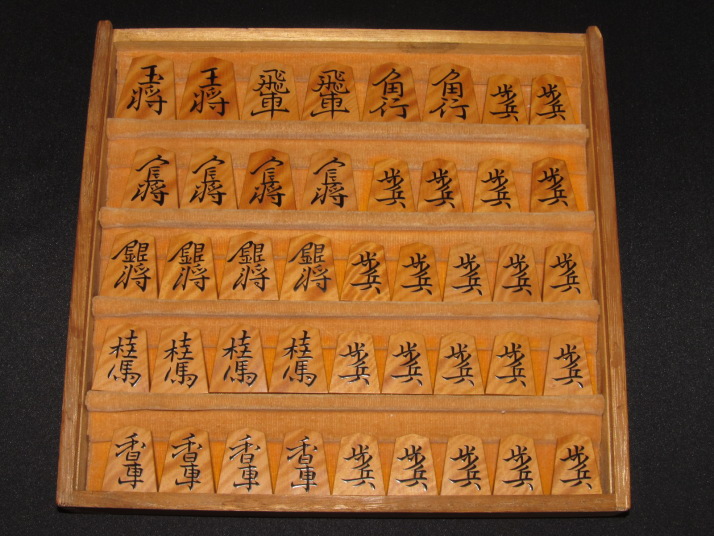 玉将 王将 飛車 飛車 角行 角行 歩兵 歩兵
金将 金将 金将 金将 歩兵 歩兵 歩兵 歩兵
銀将 銀将 銀将 銀将 歩兵 歩兵 歩兵 歩兵 歩兵
桂馬 桂馬 桂馬 桂馬 歩兵 歩兵 歩兵 歩兵 歩兵
香車 香車 香車 香車 歩兵 歩兵 歩兵 歩兵 歩兵